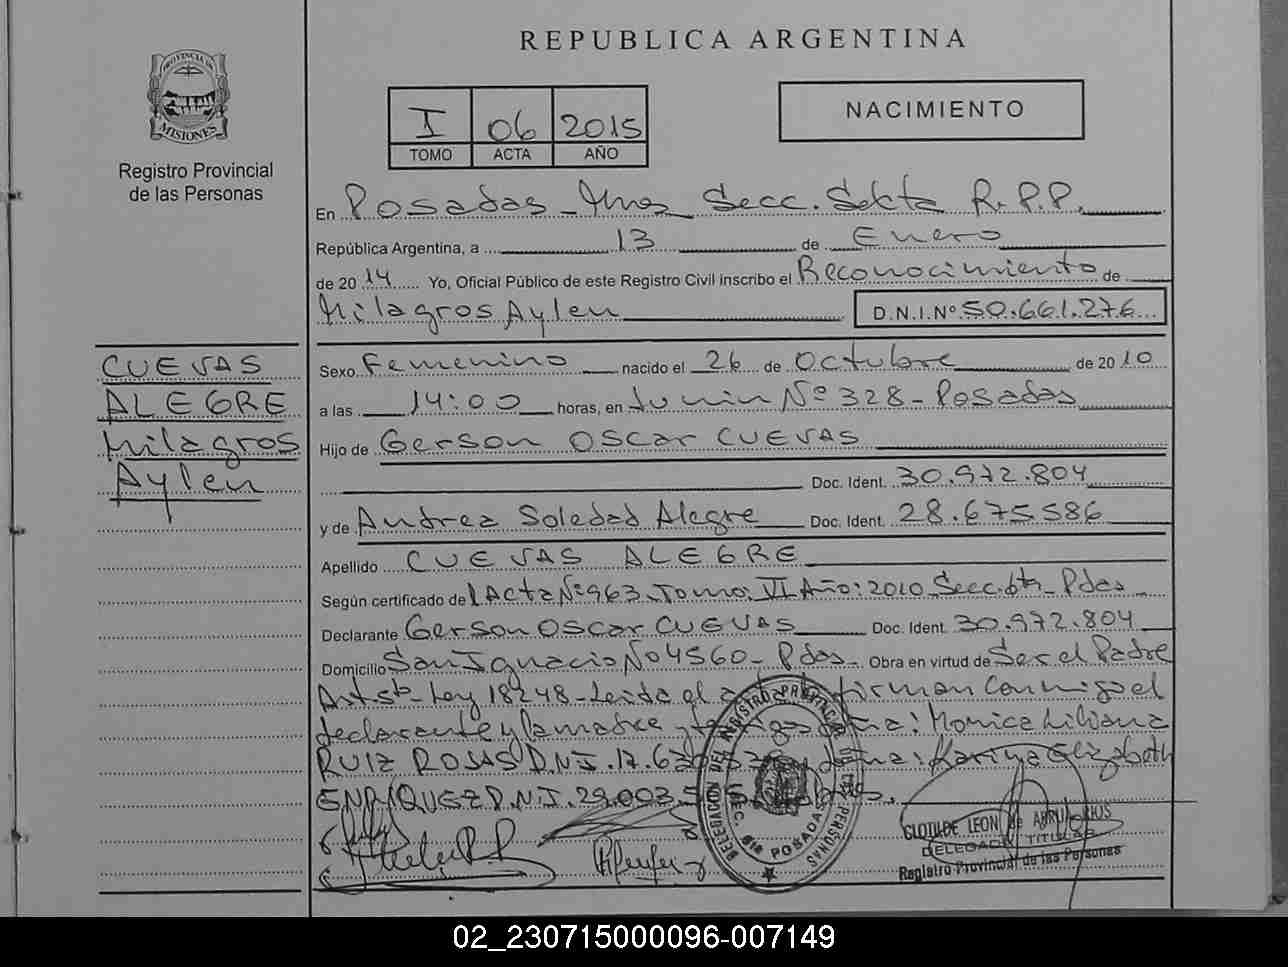 REPUBLICA ARGENTINA
PROVINCIA DE
MISIONES
Registro Provincial
de las Personas
I 06 2015
TOMO ACTA AÑO
NACIMIENTO
En Posadas - Mnes Secc. Sexta R.P.P.
República Argentina, a 13 de Enero
de 2014 Yo, Oficial Público de este Registro Civil inscribo el Reconocimiento de
Milagros Aylen D.N.I.Nº 50.661.276
CUEVAS
ALEGRE
Milagros
Aylen
Sexo Femenino nacido el 26 de Octubre de 2010
a las 14:00 horas, en Junin Nº 328 - Posadas
Hijo de Gerson Oscar CUEVAS
Doc. Ident. 30.972.804
y de Andrea Soledad Alegre Doc. Ident. 28.675586
Apellido CUEVAS ALEGRE
Según certificado de Acta Nº 963 - Tomo: VI Año: 2010 Secc. 6ta - Pdas
Declarante Gerson Oscar CUEVAS Doc. Ident. 30.972.804
Domicilio San Ignacio Nº 4560 - Pdas - Obra en virtud de Ser el Padre
Art. 5to Ley 18248 - Leida el firman conmigo el
declarante y la madre y Monica Liliana
RUIZ ROSAS D.N.I. 17.630 Karina Elizabeth
ENRIQUEZ D.N.I. 29.003
DELEGACION DEL REGISTRO PROVINCIAL DE LAS PERSONAS
SEC. 6ta POSADAS
CLOTILDE LEON de
DELEGADA TITULAR
Registro Provincial de las Personas
02_230715000096-007149